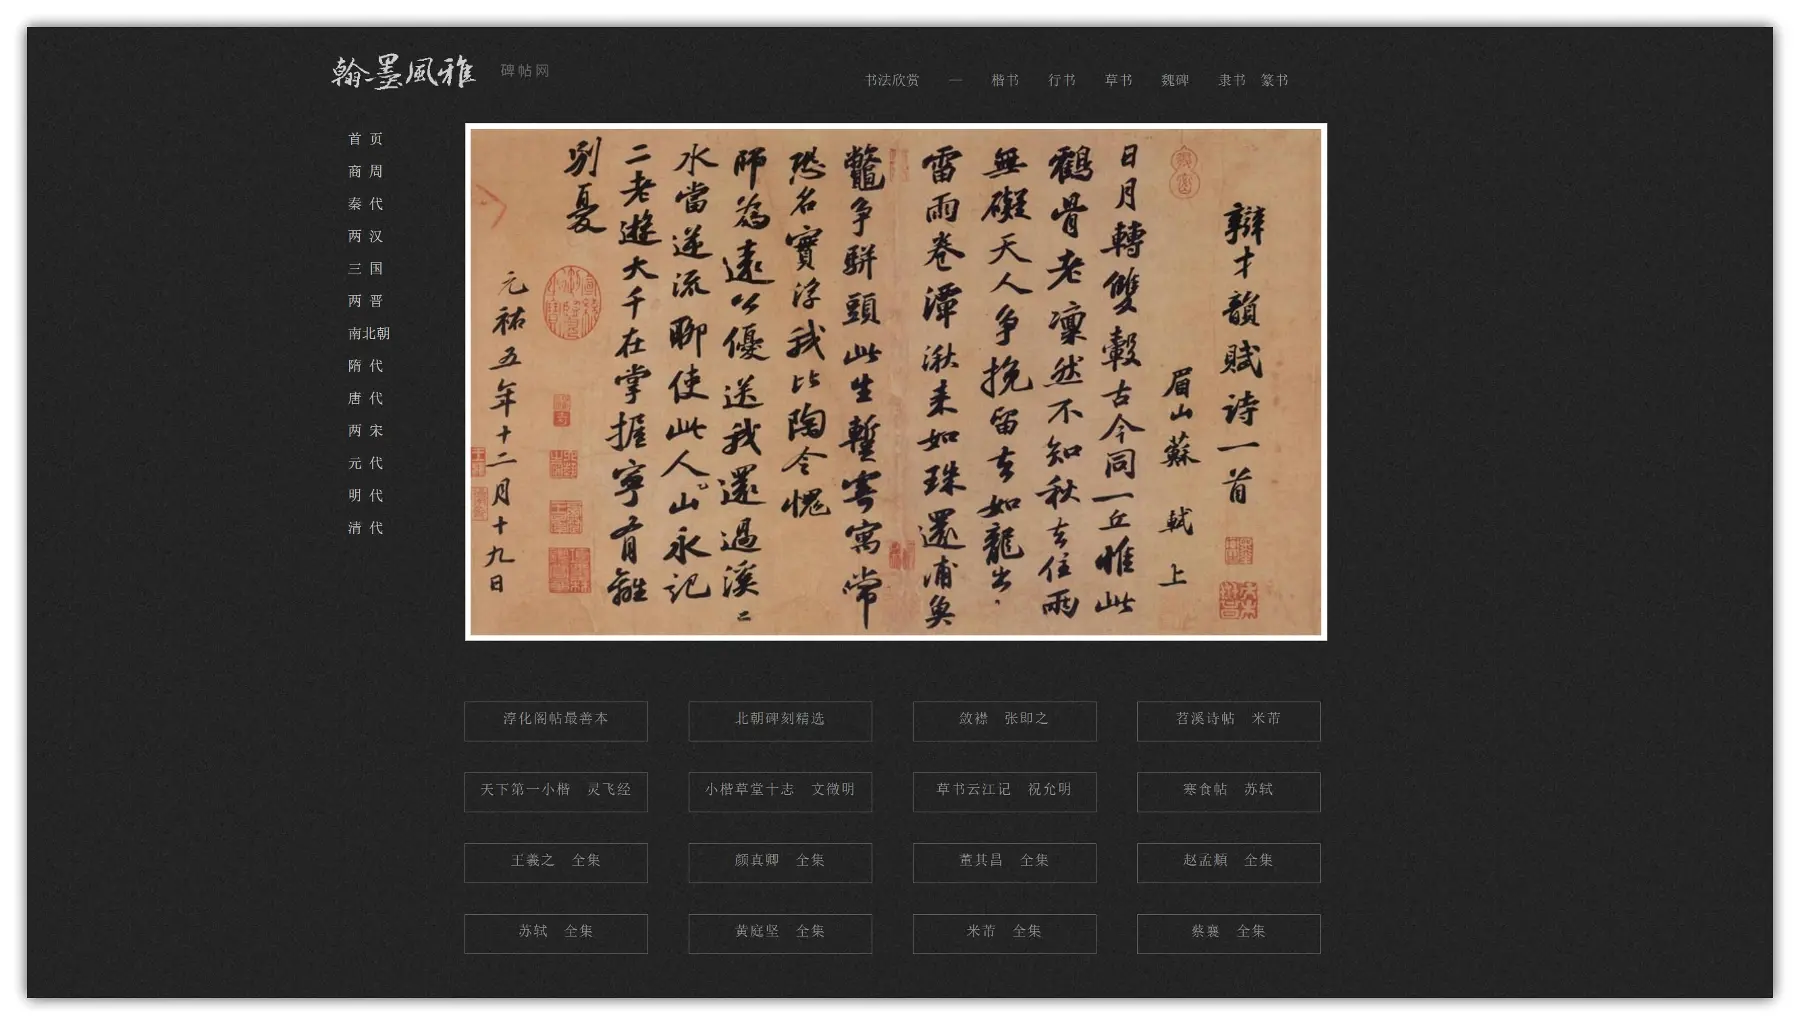 翰墨風雅
碑帖网
书法欣赏 — 楷书 行书 草书 魏碑 隶书 篆书
首 页
商 周
秦 代
两 汉
三 国
两 晋
南北朝
隋 代
唐 代
两 宋
元 代
明 代
清 代
辯才韻賦诗一首
眉山蘇軾上
日月轉雙轂古今同一丘惟此
鶴骨老凜然不知秋去住兩
無礙天人争挽留去如龍出
雷雨卷潭湫来如珠還浦魚
鼈争駢頭此生蹔寄寓常
恐名實浮我比陶令愧
師為遠公優送我還過溪〻
水當逆流聊使此人山永记
二老遊大千在掌握寧有離
别憂
元祐五年十二月十九日
淳化阁帖最善本
北朝碑刻精选
敛襟 张即之
苕溪诗帖 米芾
天下第一小楷 灵飞经
小楷草堂十志 文徵明
草书云江记 祝允明
寒食帖 苏轼
王羲之 全集
颜真卿 全集
董其昌 全集
赵孟頫 全集
苏轼 全集
黄庭坚 全集
米芾 全集
蔡襄 全集